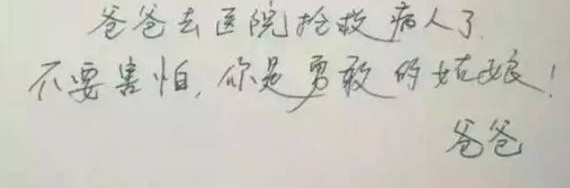 爸爸去医院抢救病人了.
不要害怕,你是勇敢的姑娘!
爸爸